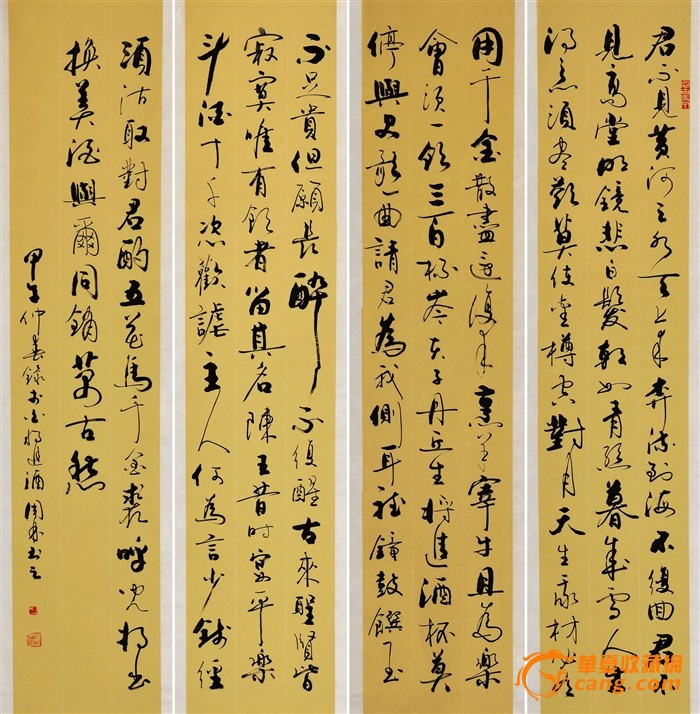 君不見黄河之水天上来奔流到海不復回君不
見高堂明鏡悲白髮朝如青絲暮成雪人生
得意須盡歡莫使金樽空對月天生我材必有
用千金散盡還復来烹羊宰牛且為樂
會須一飲三百杯岑夫子丹丘生將進酒杯莫
停與君歌一曲請君為我側耳聽鐘鼓饌玉
不足貴但願長醉不復醒古來聖賢皆
寂寞唯有飲者留其名陳王昔時宴平樂
斗酒十千恣歡謔主人何為言少錢徑
須沽取對君酌五花馬千金裘呼兒将出
換美酒與爾同銷萬古愁
甲午仲春錄李白将進酒周書之
華夏收藏網
cang.com